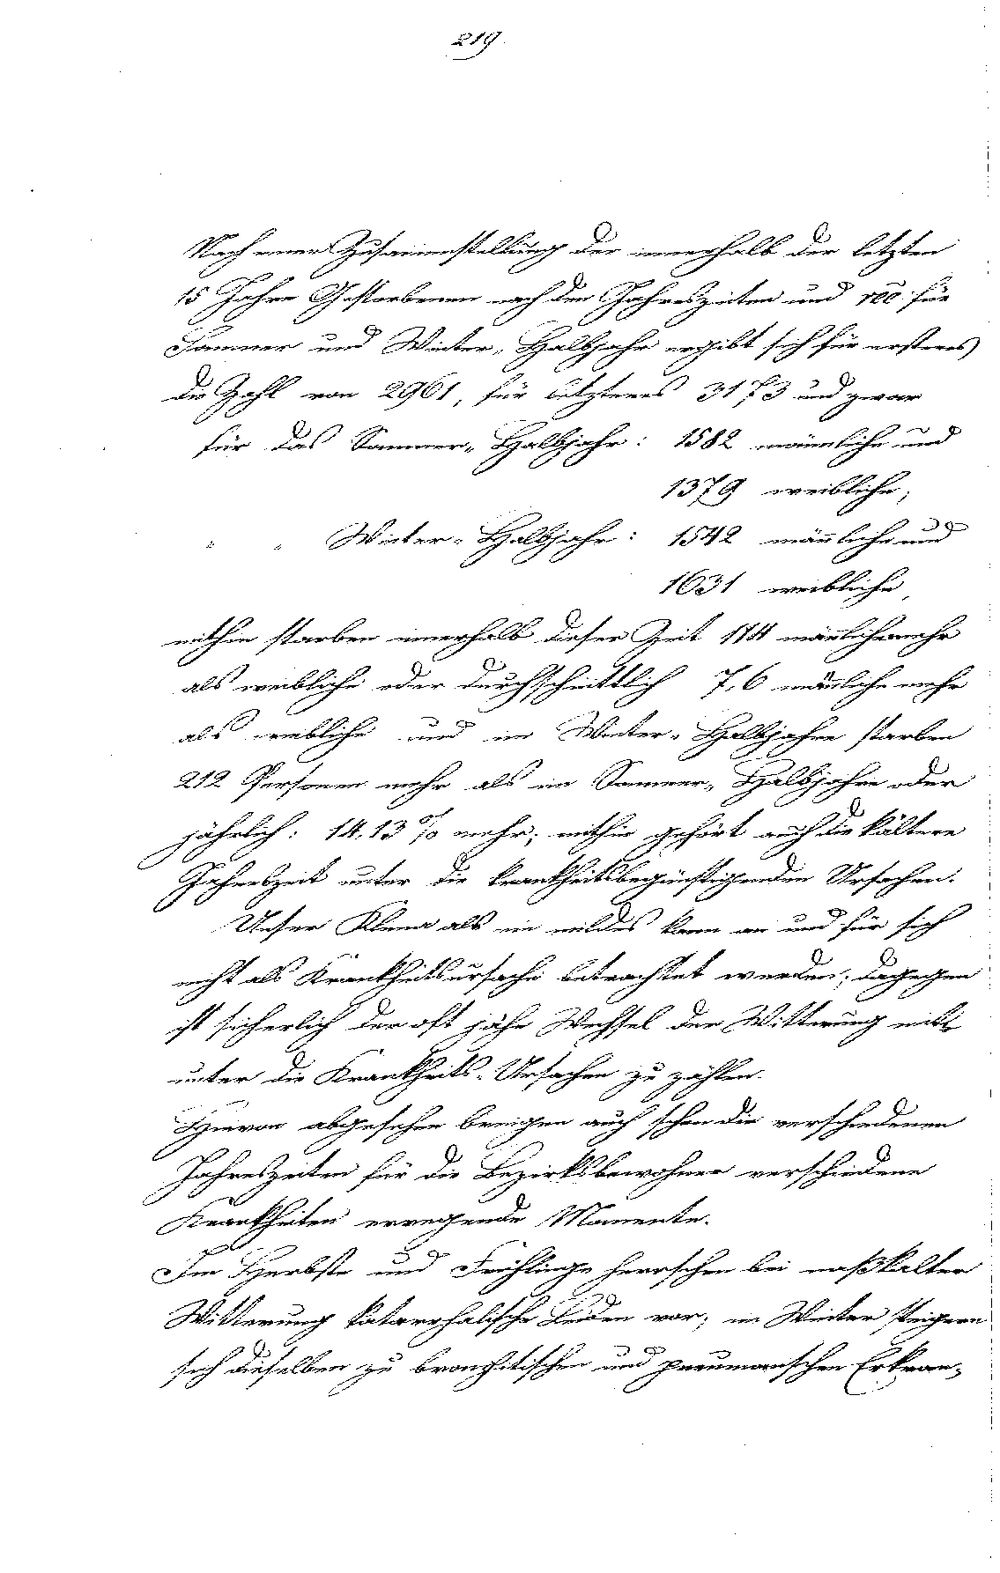 219.
Nach einer Zusammenstellung der innerhalb der letzten
15 Jahre Gestorbenen nach den Jahreszeiten und für
Sommer und Winter-Halbjahr ergibt sich für ersteres
die Zahl von 2961, für letzteres 3173 und zwar
für das Sommer-Halbjahr: 1582 männliche und
1379 weibliche;
" " Winter-Halbjahr: 1542 männliche und
1631 weibliche,
mithin starben innerhalb dieser Zeit 114 männliche mehr
als weibliche oder durchschnittlich 7,6 männliche mehr
als weibliche und im Winter-Halbjahre starben
212 Personen mehr als im Sommer-Halbjahre oder
jährlich: 14.13 % mehr; mithin gehört auch die kältere
Jahreszeit unter die krankheitsbegünstigenden Ursachen.
Unser Klima als ein mildes kann an und für sich
nicht als Krankheitsursache betrachtet werden; dagegen
ist sicherlich der oft jähe Wechsel der Witterung mit
unter die Krankheits-Ursachen zu zählen.
Hievon abgesehen bringen auch schon die verschiedenen
Jahreszeiten für die Bezirksbewohner verschiedene
Krankheiten erregende Momente.
Im Herbste und Frühlinge herrschen bei naßkalter
Witterung katarrhalische Leiden vor; im Winter steigern
sich dieselben zu bronchitischen und pneumonischen Erkran-